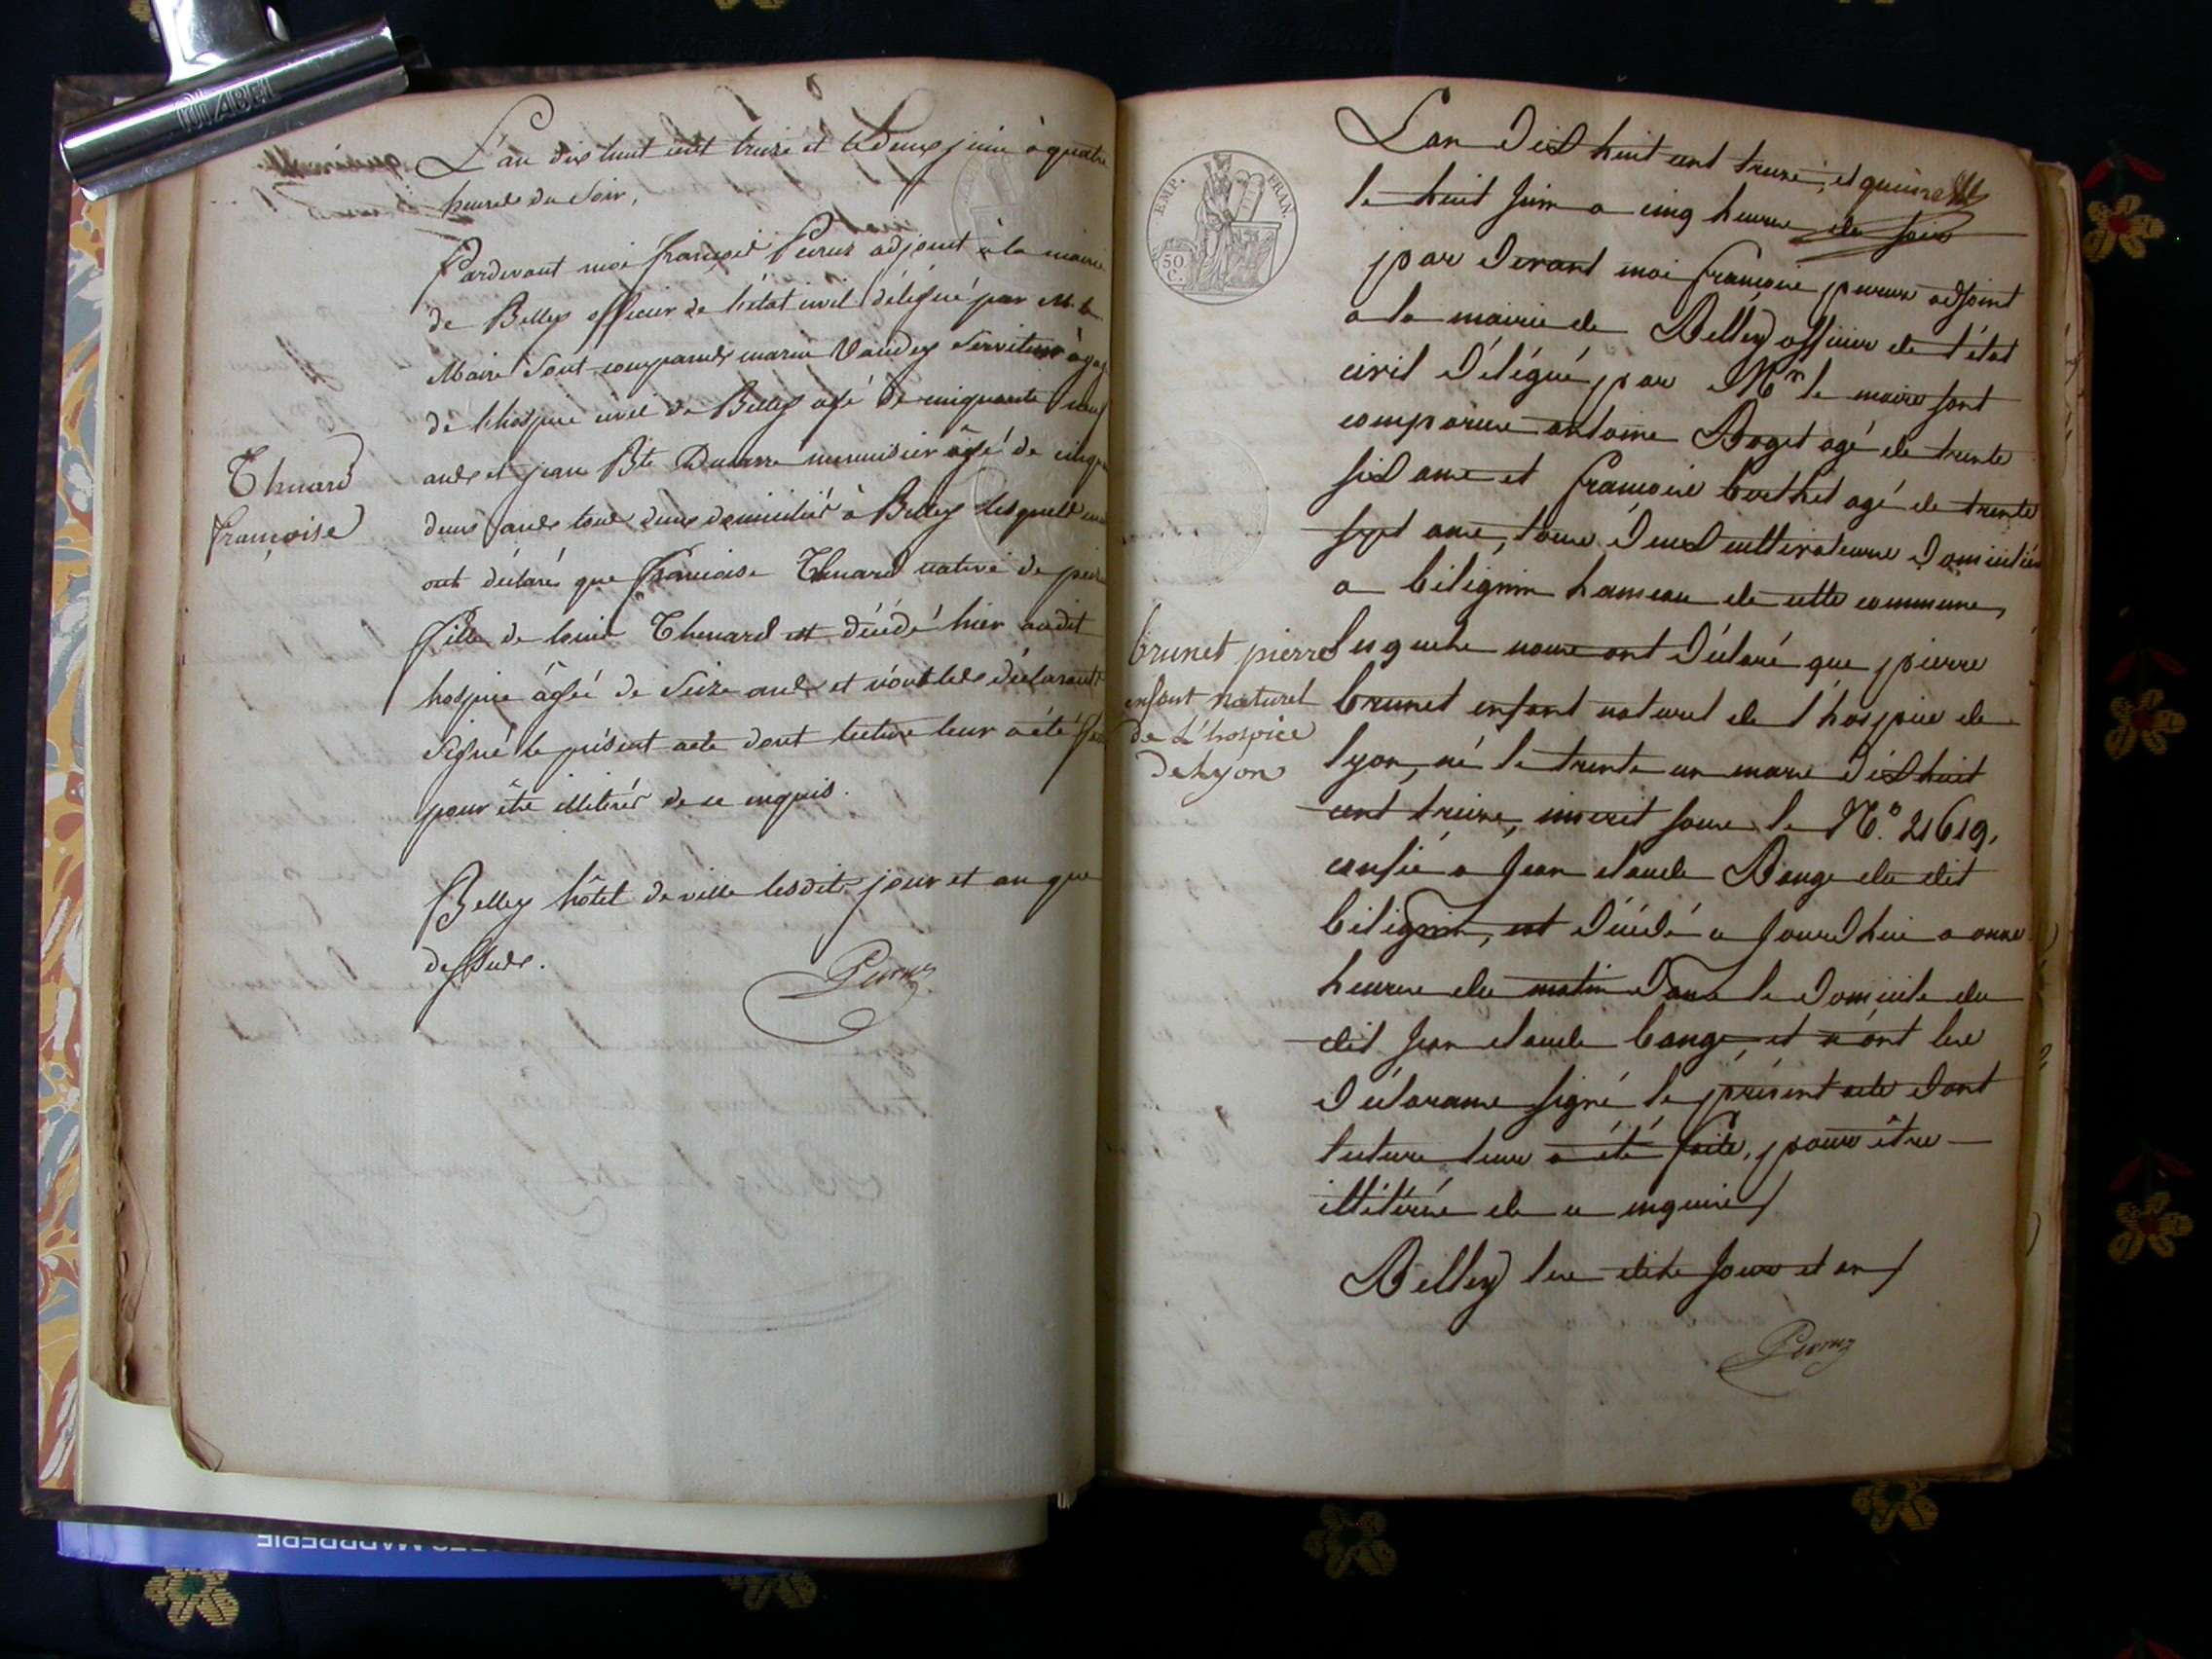 L'an dix huit cent treize et le deux juin à quatre
heures du soir,
Pardevant moi françois Peruz adjoint à la mairie
de Belley officier de l'état civil délégué par M. le
Maire sont comparus marin Vander serviteur à gages
de l'hospice civil de Belley agé de cinquante neuf
ans et jean Bte menuisier âgé de cinqu
deux ans tous deux domiciliés à Belley lesquels
ont déclaré que françoise Thenard native de
fille de louis Thenard est décédé hier audit
hospice âgée de seize ans et n'ont les déclarants
signé le présent acte dont lecture leur a été
pour être illitérés de ce enquis.
Belley hôtel de ville lesdits jour et an que
dessus.
Peruz
Thenard
françoise
EMP. FRAN.
50
C.
L'an dix huit cent treize, et
le huit juin a cinq heures du soir
par devant moi françois peruz adjoint
a la mairie de Belley officier de l'état
civil délégué par Mr le maire sont
comparus antoine Boget agé de trente
six ans et françois berthet agé de trente
sept ans, tous deux cultivateurs domiciliés
a bilignin hameau de cette commune,
lesquels nous ont déclaré que pierre
brunet enfant naturel de l'hospice de
lyon, né le trente un mars dix huit
cent treize, inscrit sous le No. 21619,
confié a jean claude Bange du dit
bilignin, est décédé aujourdhui a onze
heures du matin dans le domicile du
dit jean claude bange, et n'ont les
déclarans signé le présent acte dont
lecture leur a été faite, pour être
illitérés de ce enquis
Belley les dits jour et an
Peruz
brunet pierre
enfant naturel
de L'hospice
de Lyon